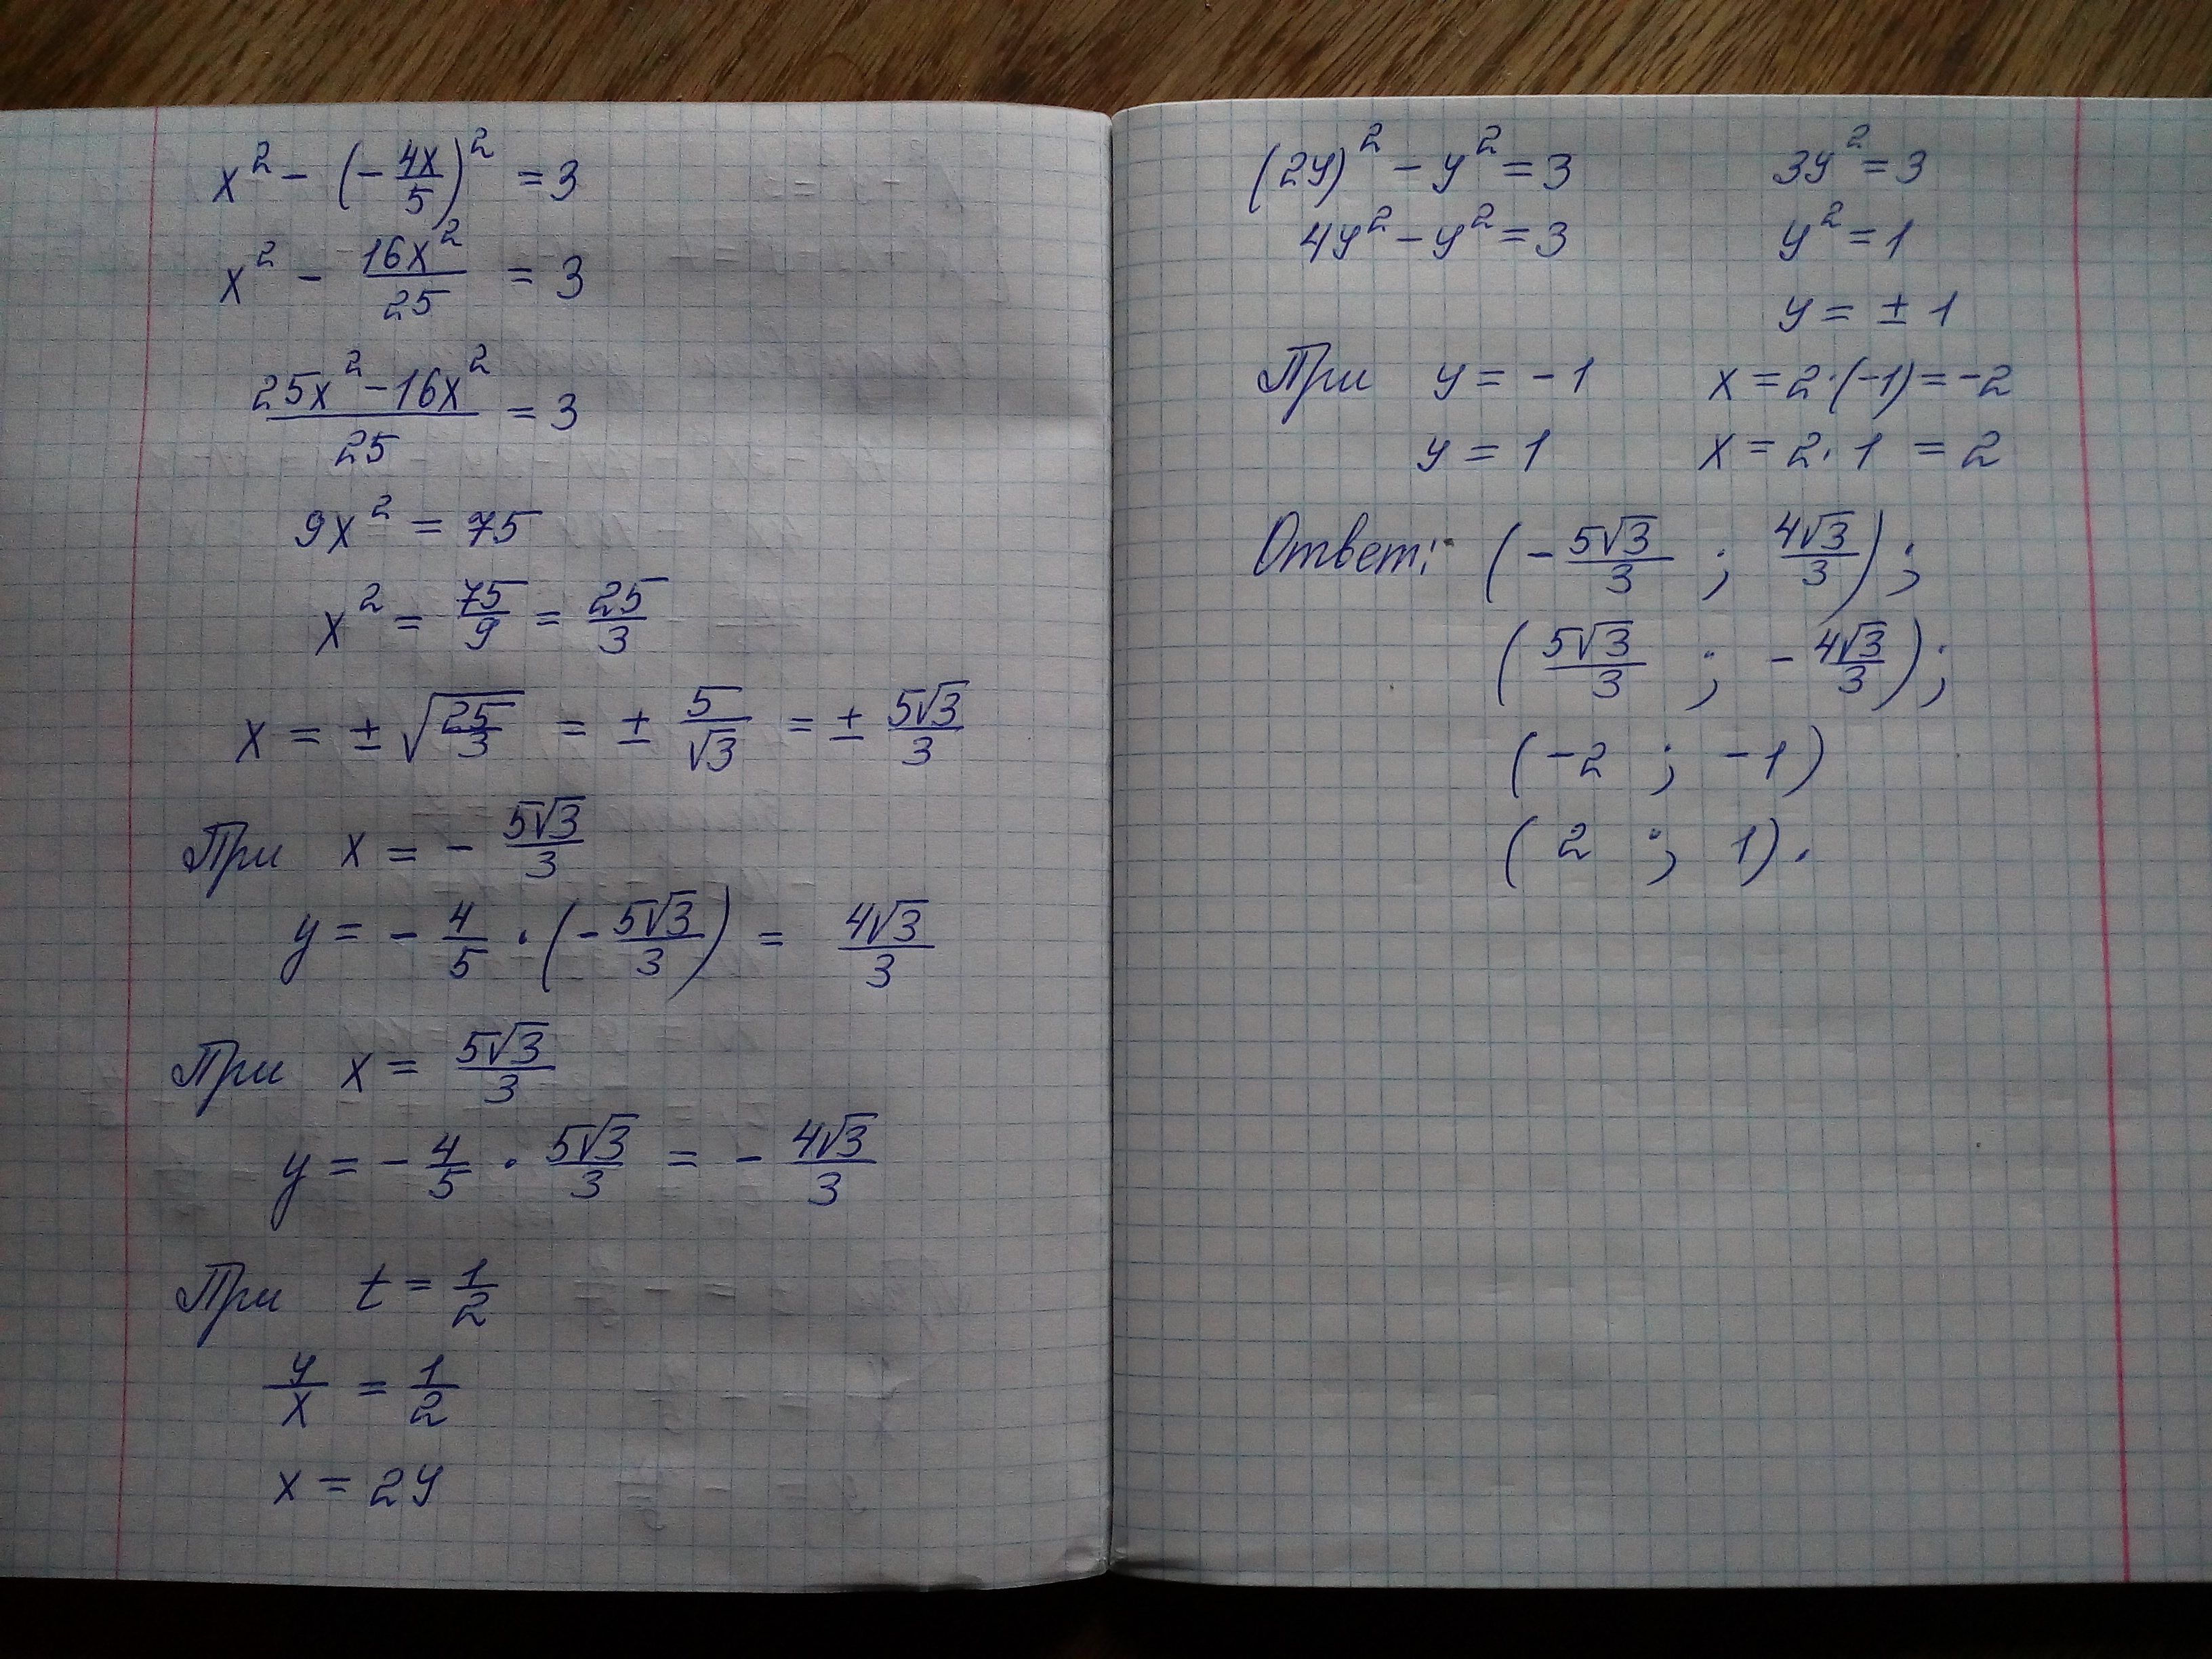 x² - (-4x/5)² = 3
x² - 16x²/25 = 3
(25x² - 16x²)/25 = 3
9x² = 75
x² = 75/9 = 25/3
x = ± √(25/3) = ± 5/√3 = ± 5√3/3
При x = - 5√3/3
y = - 4/5 · (- 5√3/3) = 4√3/3
При x = 5√3/3
y = - 4/5 · 5√3/3 = - 4√3/3
При t = 1/2
y/x = 1/2
x = 2y
(2y)² - y² = 3 3y² = 3
4y² - y² = 3 y² = 1
y = ± 1
При y = -1 x = 2·(-1) = -2
y = 1 x = 2·1 = 2
Ответ: (- 5√3/3 ; 4√3/3);
(5√3/3 ; - 4√3/3);
(-2 ; -1)
(2 ; 1).